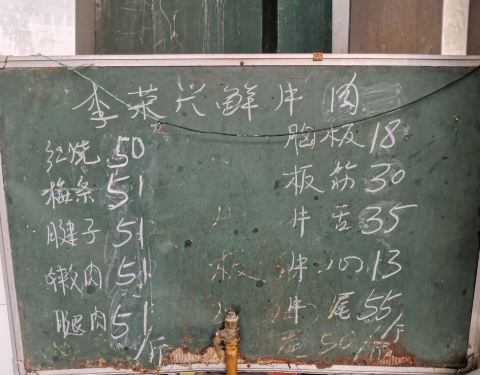 李荣兴鲜牛肉
红烧50
梅条51
腱子51
嫩肉51
腿肉51/斤
胸板18
板筋30
牛舌35
牛心13
牛尾55/斤